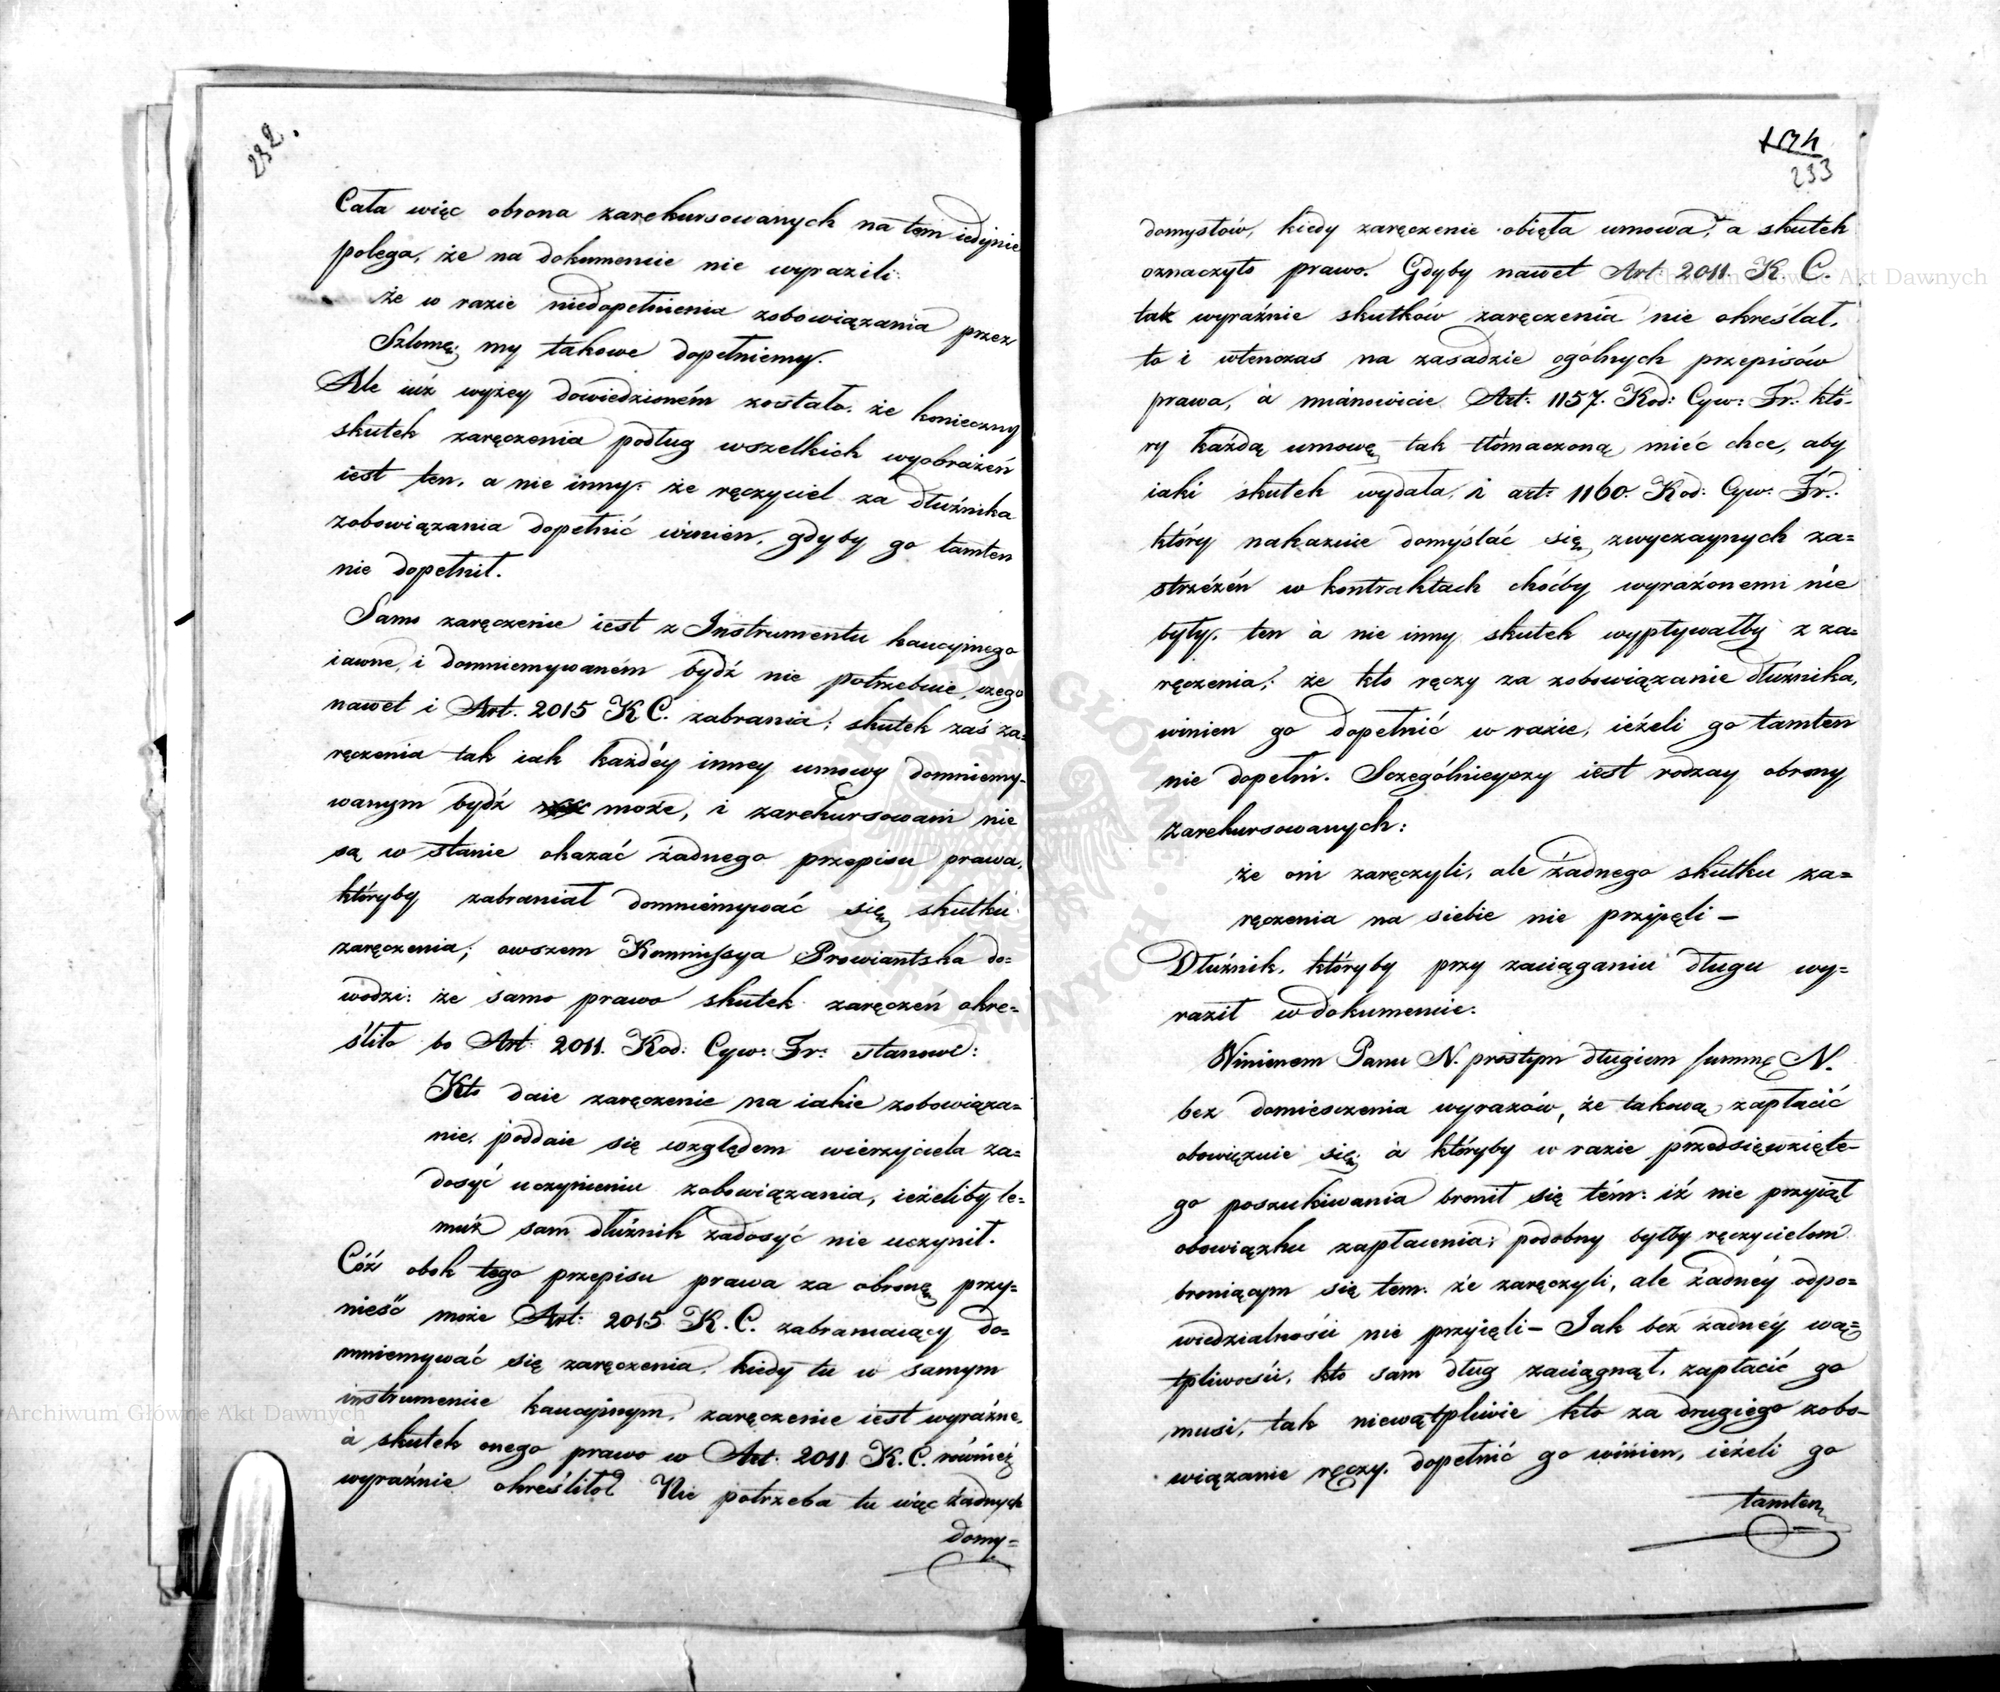 232.
Cała więc obrona zarekursowanych na tem iedynie
polega, że na dokumencie nie wyrazili:
że w razie niedopełnienia zobowiązania przez
Szlomę; my takowe dopełniemy.
Ale iuż wyżey dowiedzioném zostało: że konieczny
skutek zaręczenia podług wszelkich wyobrażeń
iest ten, a nie inny: że ręczyciel za dłużnika
zobowiązania dopełnić winien, gdyby go tamten
nie dopełnił.
Samo zaręczenie iest z Instrumentu kaucyinego
iawne, i domniemywaném bydź nie potrzebuie, czego
nawet i Art. 2015 K C. zabrania; skutek zaś za=
ręczenia tak iak każdéy inney umowy domniemy-
wanym bydź może, i zarekursowani nie
są w stanie okazać żadnego przepisu prawa,
któryby zabraniał domniemywać się skutku
zaręczenia; owszem Kommissya Prowiantska do=
wodzi: że samo prawo skutek zaręczeń okre=
śliło bo Art: 2011. Kod: Cyw: Fr: stanowi:
Kto daie zaręczenie na iakie zobowiąza=
nie, poddaie się względem wierzyciela za=
dosyć uczynieniu zobowiązania, ieżeliby te=
muż sam dłużnik zadosyć nie uczynił.
Cóż obok tego przepisu prawa za obronę przy=
nieść może Art: 2015 K. C. zabraniaiący do=
mniemywać się zaręczenia, kiedy tu w samym
instrumencie kaucyinym, zaręczenie iest wyraźne,
à skutek onego prawo w Art: 2011 K. C. również
wyraźnie określiło? Nie potrzeba tu więc żadnych
domy=
233
domysłów, kiedy zaręczenie obięła umowa, a skutek
oznaczyło prawo. Gdyby nawet Art: 2011. K. C.
tak wyraźnie skutków zaręczenia nie określał,
to i wtenczas na zasadzie ogólnych przepisów
prawa, à mianowicie Art: 1157. Kod: Cyw: Fr: któ-
ry każdą umowę tak tłómaczoną mieć chce, aby
iaki skutek wydała, i art: 1160. Kod: Cyw: Fr:
który nakazuie domyślać się zwyczaynych za=
strzéżéń w kontraktach choćby wyrażonemi nie
były, ten à nie inny skutek wypływałby z za=
ręczenia; że kto ręczy za zobowiązanie dłużnika,
winien go dopełnić w razie, ieżeli go tamten
nie dopełni. Szczególnieyszy iest rodzay obrony
zarekursowanych:
że oni zaręczyli, ale żadnego skutku za=
ręczenia na siebie nie przyięli –
Dłużnik, któryby przy zaciąganiu długu wy=
raził w dokumencie:
Winienem Panu N. prostym długiem summę N.
bez domieszczenia wyrazów, że takową zapłacić
obowiązuie się; à któryby w razie przedsięwzięte-
go poszukiwania bronił się tém: iż nie przyiął
obowiązku zapłacenia; podobny byłby ręczycielom
broniącym się tem: że zaręczyli, ale żadnéy odpo=
wiedzialności nie przyięli – Jak bez żadnéy wą=
tpliwości, kto sam dług zaciągnął, zapłacić go
musi, tak niewątpliwie kto za drugiego zobo-
wiązanie ręczy, dopełnić go winien, ieżeli go
tamten
Archiwum Główne Akt Dawnych
Archiwum Główne Akt Dawnych